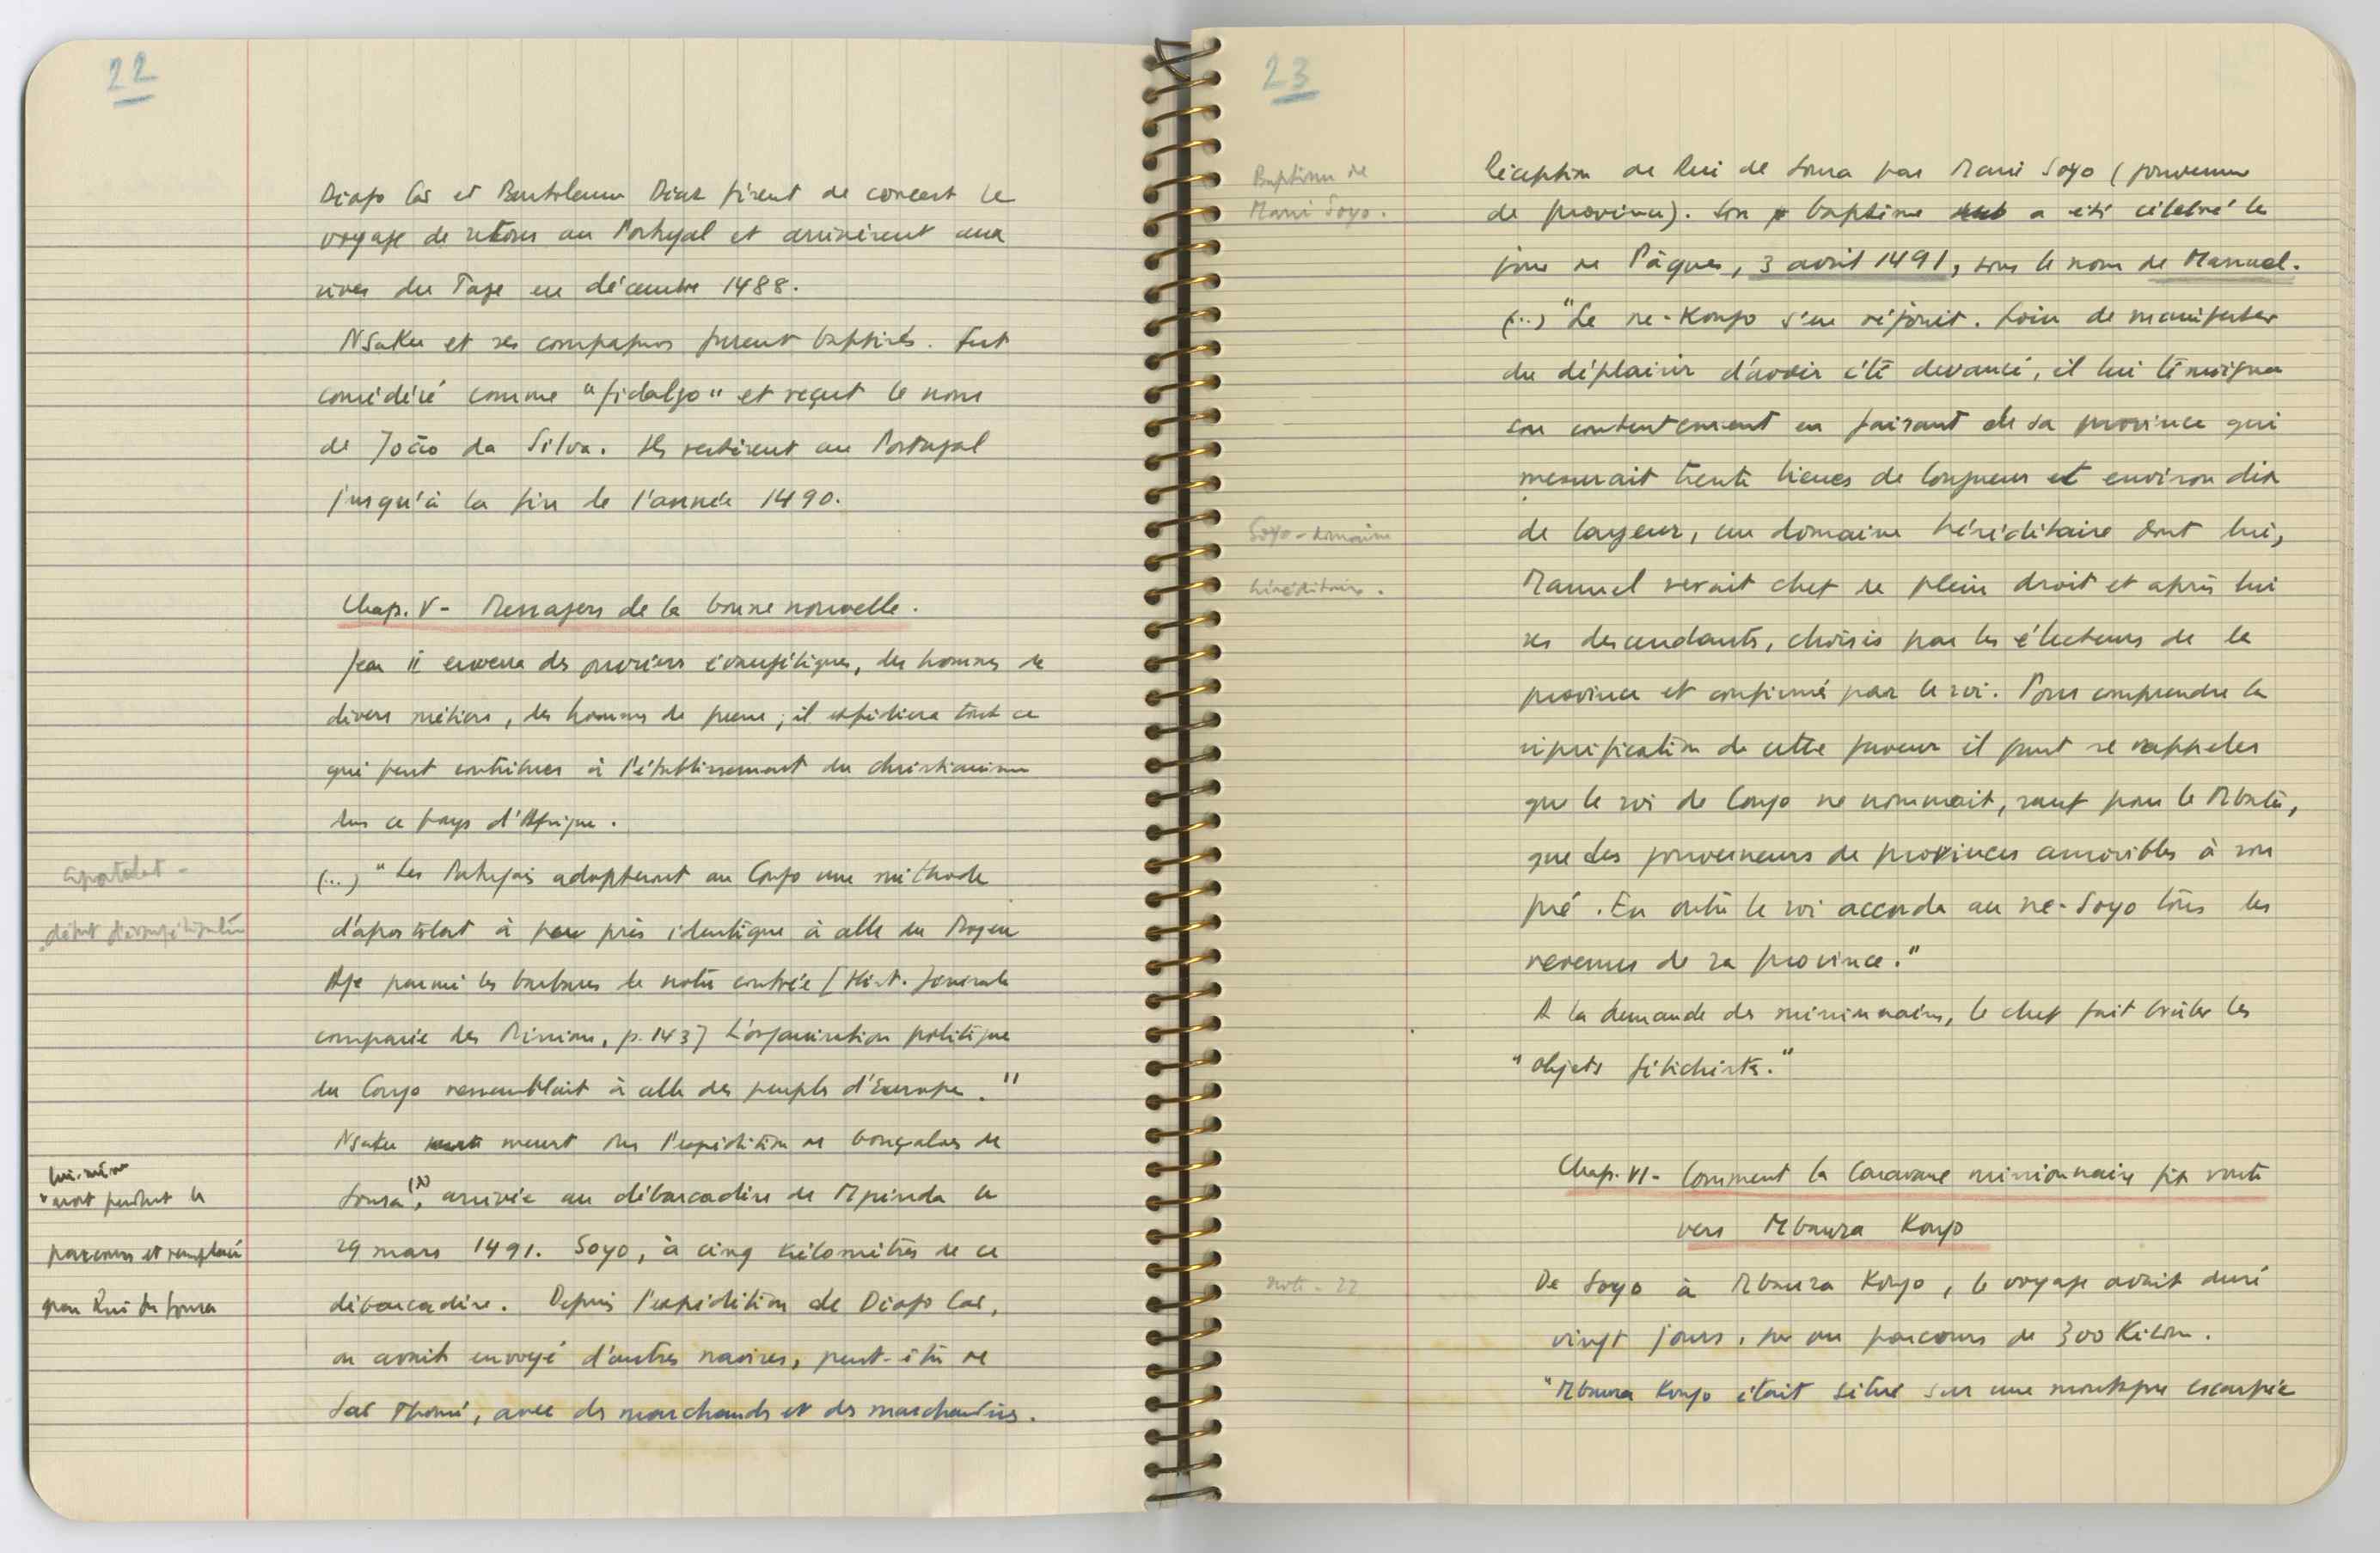 22
Diogo Cão et Bartolomeu Diaz firent de concert le
voyage de retour au Portugal et arrivèrent aux
rives du Tage en décembre 1488.
NSaku et ses compagnons furent baptisés. Fut
considéré comme "fidalgo" et reçut le nom
de João da Silva. Ils restèrent au Portugal
jusqu'à la fin de l'année 1490.
Chap. V - Messagers de la bonne nouvelle.
Jean II enverra des ouvriers évangéliques, des hommes de
divers métiers, des hommes de guerre ; il expédiera tout ce
qui peut contribuer à l'établissement du christianisme
dans ce pays d'Afrique.
apostolat -
début d'évangélisation
(...) "Les Portugais adopteront au Congo une méthode
d'apostolat à peu près identique à celle du Moyen
Age parmi les barbares de notre contrée [Hist. générale
comparée des Missions, p. 143] L'organisation politique
du Congo ressemblait à celle des peuples d'Europe."
Nsaku meurt dans l'expédition de Gonçalves de
Sousa (N), arrivée au débarcadère de Mpinda le
29 mars 1491. Soyo, à cinq kilomètres de ce
débarcadère. Depuis l'expédition de Diogo Cão,
on avait envoyé d'autres navires, peut-être de
São Thomé, avec des marchands et des marchandises.
lui-même
"mort pendant le
parcours et remplacé
par Rui de Sousa
23
Baptême de
Mani Soyo.
Réception de Rui de Sousa par Mani Soyo (gouverneur
de province). Son baptême a été célébré le
jour de Pâques, 3 avril 1491, sous le nom de Manuel.
(...) "Le ne-Kongo s'en réjouit. Loin de manifester
du déplaisir d'avoir été devancé, il lui témoigna
son contentement en faisant de sa province qui
mesurait trente lieues de longueur et environ dix
Soyo - domaine
héréditaire.
de largeur, un domaine héréditaire dont lui,
Manuel serait chef de plein droit et après lui
ses descendants, choisis par les électeurs de la
province et confirmés par le roi. Pour comprendre la
signification de cette faveur il faut se rappeler
que le roi de Congo ne nommait, sauf pour le Mbata,
que des gouverneurs de provinces amovibles à son
gré. En outre le roi accorda au ne-Soyo tous les
revenus de sa province."
A la demande des missionnaires, le chef fait brûler les
"objets fétichistes."
Chap. VI - Comment la caravane missionnaire fit route
vers Mbanza Kongo
note - 22
De Soyo à Mbanza Kongo, le voyage avait duré
vingt jours, sur un parcours de 300 Kilom.
"Mbanza Kongo était situé sur une montagne escarpée